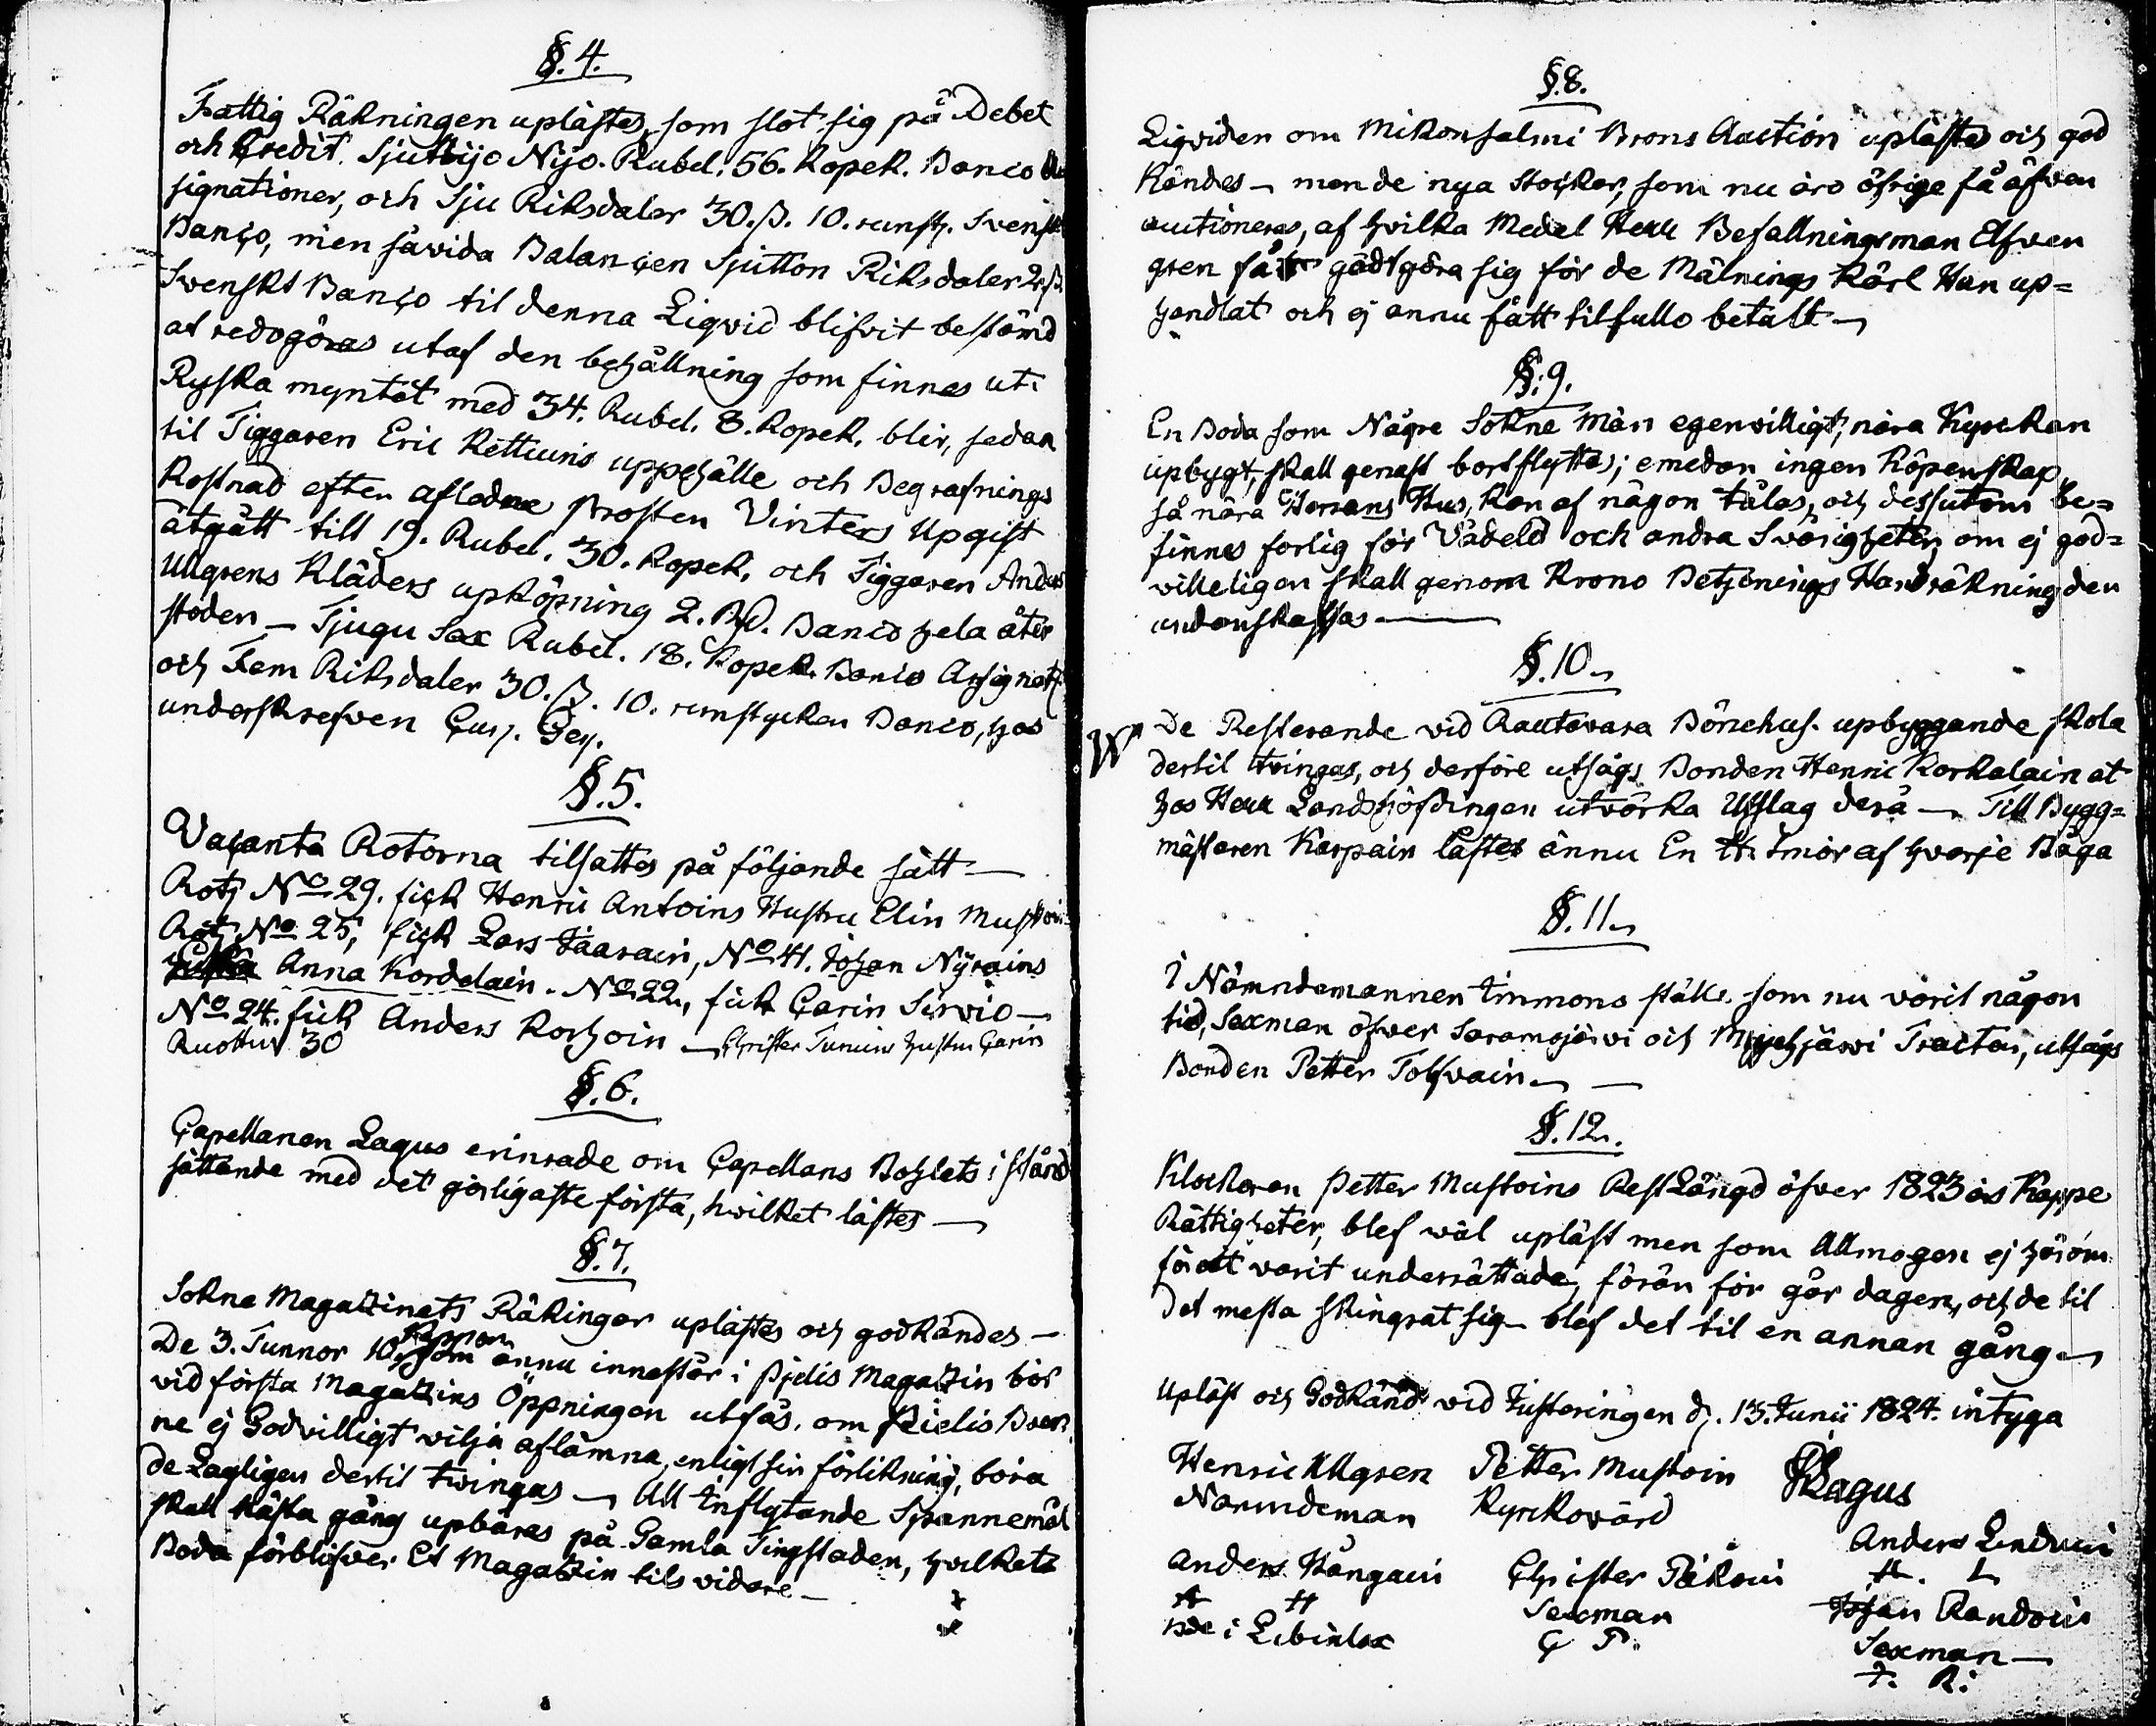 §. 4.
Fattig Räkningen uplästes, som slöt sig på Debet
och Credit. Sjuttijo Nijo. Rubel. 56. Kopek. Banco As
signationer, och Sju Riksdaler 30. ß. 10. runst. Svenskt
Banço, men såvida Balançen Sjutton Riksdaler 2 ß
Svenskt Banço til denna Liqvid blifvit bestämd
at redogöras utaf den behållning som finnes uti
Ryska myntet med 34. Rubel. 8. Kopek. blir, sedan
til Tiggaren Eric Kettuins uppehälle och Begrafnings
Kostnad efter afledne Prosten Vinters Upgift
åtgått till 19. Rubel. 30. Kopek. och Tiggaren Anders
Ullgrens Kläders upköpning 2. Banco hela åter
stoden — Tjugu Sex Rubel. 18. Kopek. Banco Assignat
och Fem Riksdaler 30. ß. 10. runstycken Banco, hos
underskrefven
§. 5.
Vaçanta Rotorna tilsattes på följande sätt —
Rotj No 29. fick Henric Antoins Hustru Elin Mustoin
Rotj No 25, fick Lars Jäärain, No 41. Johan Nyrains
Anna Kordelain. No 22, fick Çarin Sirviö —
No 24. fick Anders Korhoin — Christer Turuins hustru Çarin
Ruottus 30
§. 6.
Çapellanen Lagus erinrade om Çapellans Bohlets i stånd
sättande med det görligaste första, hvilket låftes —
§. 7.
Sokne Magazinets Räkingar uplästes och godkändes —
De 3. Tunnor 10. Kappar som ännu innestår i Pjelis Magazin bör
vid första Magazins Öppningen utfås, om Pielis Boer
ne ej Godvilligt vilja aflämna, enligt sin förlikning, böra
de Lagligen dertil tvingas — All Inflytande Spannemål
skall nästa gång upbäras på Gamla Tingstaden, hvilkets
Boda förblifver Et Magazin tils vidare —
§. 8.
Liqviden om Mikonsalmi Brons Auction uplästes och god
kändes — men de nya Stockar, som nu äro öfrige få äfven
auctioneras, af hvilka Medel Herr Befallningsman Elfven
gren får godtgöra sig för de Målnings Kärl Han up=
handlat och ej ännu fått tilfullo betalt —
§. 9.
En Boda som Någre Sokne Män egenvilligt, nära Kyrckan
upbygt, skall genast bortflyttas; emedan ingen Köpenskap
så nära Herrans Hus, kan af någon tålas, och dessutom be=
finnes farlig för Vådeld och andra Svårigheter, om ej god=
villeligen skall genom Krono Betjenings Handräkning den
undanskaffas —
§. 10.
De Resterande vid Rautavara Bönehus. upbyggande skola
dertil tvingas, och derföre utsågs Bonden Henric Korkalain at
hos Herr Landshöfdingen utvörka Utslag derå — Till Bygg=
mästaren Karpain låftes ännu En smör af hvarje Båga
§. 11.
I Nämndemannen Immons ställe, som nu varit någon
tid, Sexman öfver Saramojärvi och Mujejärvi Tracter, utsågs
Bonden Petter Tolfvain —
§. 12.
Klockaren Petter Mustoins RestLängd öfver 1823 års Kappe
Rättigheter, blef wäl upläst men som Allmogen ej härom
förutt varit underrättade, förän för går dagen, och de til
det mesta skingrat sig — blef det til en annan gång —
Upläst och Godkänd vid Justeringen d. 13. Junii 1824. intyga
Henric Ullgren Petter Mustoin Lagus
Nämndeman Kyrkovärd
Anders Lindvain
Anders Hångain Christer Päkoin A. L.
A H Sexman Johan Randoin
Bde i Libinlax Ç P. Sexman —
J. R.